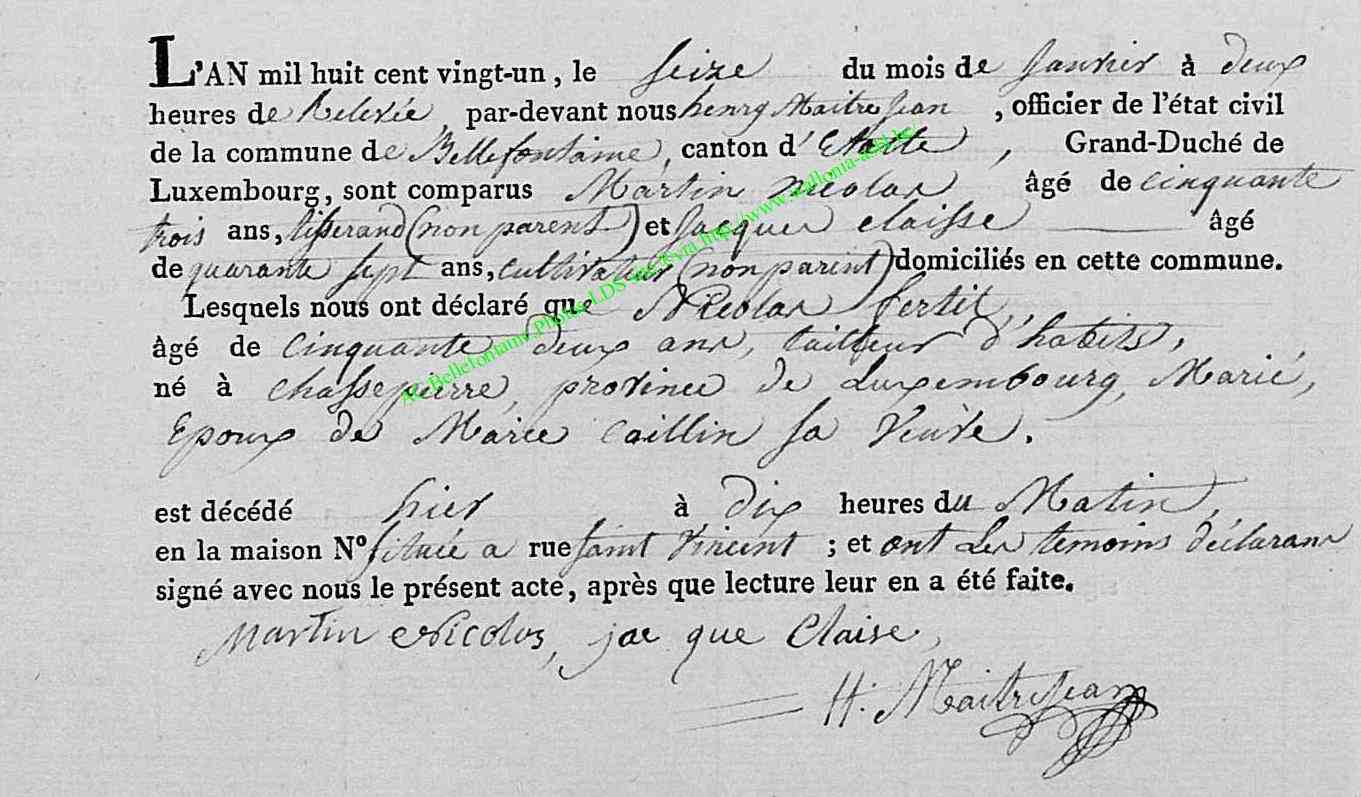 L'AN mil huit cent vingt-un, le seize du mois de Janvier à deux
heures de Relevée par-devant nous henry Maitrejean, officier de l'état civil
de la commune de Bellefontaine, canton d'Etalle, Grand-Duché de
Luxembourg, sont comparus Martin Nicolas âgé de cinquante
trois ans, tisserand (non parent) et Jacques claisse âgé
de quarante sept ans, cultivateur (non parint) domiciliés en cette commune.
Lesquels nous ont déclaré que Nicolas fertil,
âgé de cinquante deux ans, tailleur d'habits,
né à chassepierre, province de Luxembourg, Marié,
Epoux de Marie caillin sa Veuve.
est décédé hier à dix heures du Matin,
en la maison N° située a rue saint Vincent ; et ont Les temoins déclarans
signé avec nous le présent acte, après que lecture leur en a été faite.
Martin Nicolas, jac que Claise,
H. Maitrejean